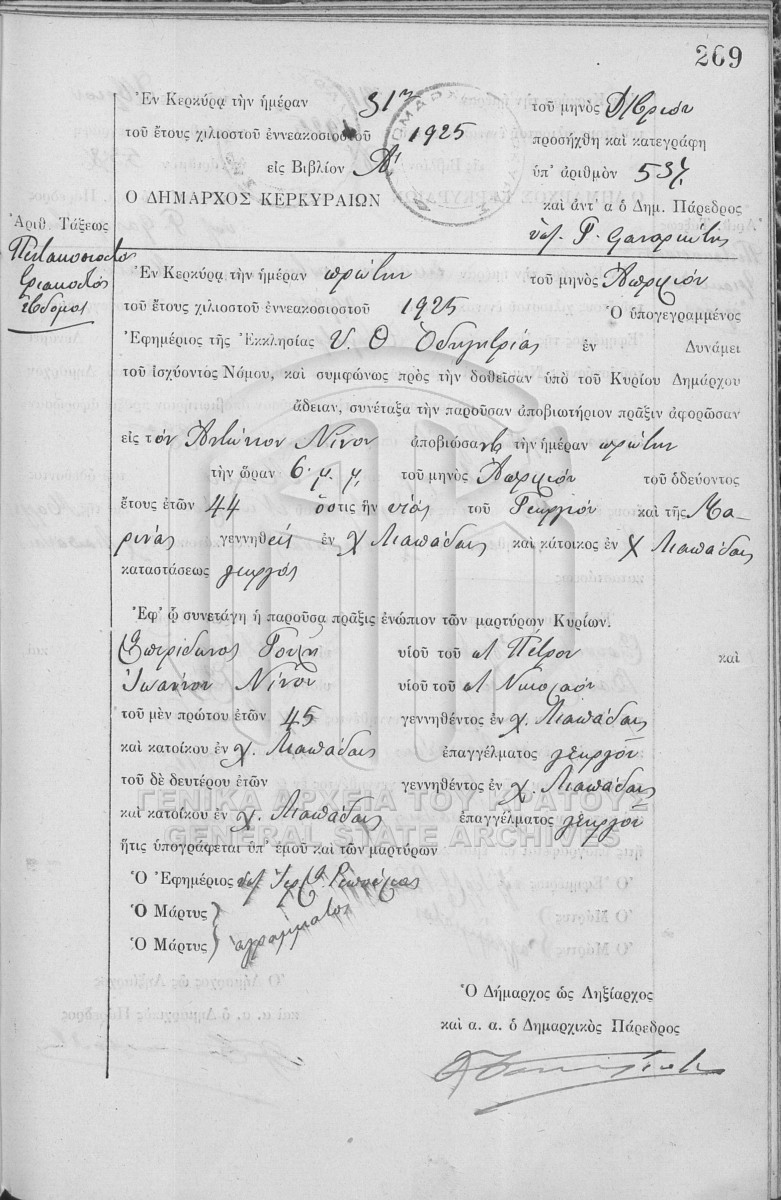 269
Ἐν Κερκύρᾳ τὴν ἡμέραν 31ῃ τοῦ μηνὸς Δ/βρίου
τοῦ ἔτους χιλιοστοῦ ἐννεακοσιοστοῦ 1925 προσήχθη καὶ κατεγράφη
εἰς Βιβλίον Α' ὑπ' ἀριθμὸν 537
Ο ΔΗΜΑΡΧΟΣ ΚΕΡΚΥΡΑΙΩΝ καὶ ἀντ' α ὁ Δημ. Πάρεδρος
ὑπ. Γ.
Ἀριθ. Τάξεως
Πεντακοσιοστὸς
τριακοστὸς
ἕβδομος
Ἐν Κερκύρᾳ τὴν ἡμέραν πρώτην τοῦ μηνὸς Ἀπριλίου
τοῦ ἔτους χιλιοστοῦ ἐννεακοσιοστοῦ 1925 Ὁ ὑπογεγραμμένος
Ἐφημέριος τῆς Ἐκκλησίας Υ. Θ Ὁδηγητρίας ἐν Δυνάμει
τοῦ ἰσχύοντος Νόμου, καὶ συμφώνως πρὸς τὴν δοθεῖσαν ὑπὸ τοῦ Κυρίου Δημάρχου
ἄδειαν, συνέταξα τὴν παροῦσαν ἀποβιωτήριον πρᾶξιν ἀφορῶσαν
εἰς τὸν Ἀντώνιον Νίνον ἀποβιώσαντα τὴν ἡμέραν πρώτην
τὴν ὥραν 6 μ. μ. τοῦ μηνὸς Ἀπριλίου τοῦ ὁδεύοντος
ἔτους ἐτῶν 44 ὅστις ἦν υἱὸς τοῦ Γεωργίου καὶ τῆς Μα-
ρίνας γεννηθεὶς ἐν χ Λιαπάδαις καὶ κάτοικος ἐν χ Λιαπάδαις
καταστάσεως γεωργὸς
Ἐφ' ᾧ συνετάγη ἡ παροῦσα πρᾶξις ἐνώπιον τῶν μαρτύρων Κυρίων.
Σπυρίδωνος υἱοῦ τοῦ Πέτρου καὶ
Ἰωάννου Νίνου υἱοῦ τοῦ Νικολάου
τοῦ μὲν πρώτου ἐτῶν 45 γεννηθέντος ἐν χ. Λιαπάδαις
καὶ κατοίκου ἐν χ. Λιαπάδαις ἐπαγγέλματος γεωργοῦ
τοῦ δὲ δευτέρου ἐτῶν γεννηθέντος ἐν χ. Λιαπάδαις
καὶ κατοίκου ἐν χ. Λιαπάδαις ἐπαγγέλματος γεωργοῦ
ΓΕΝΙΚΑ ΑΡΧΕΙΑ ΤΟΥ ΚΡΑΤΟΥΣ
GENERAL STATE ARCHIVES
ἥτις ὑπογράφεται ὑπ' ἐμοῦ καὶ τῶν μαρτύρων
Ὁ Ἐφημέριος
Ὁ Μάρτυς
Ὁ Μάρτυς ἀγράμματοι
Ὁ Δήμαρχος ὡς Ληξίαρχος
καὶ α. α. ὁ Δημαρχικὸς Πάρεδρος